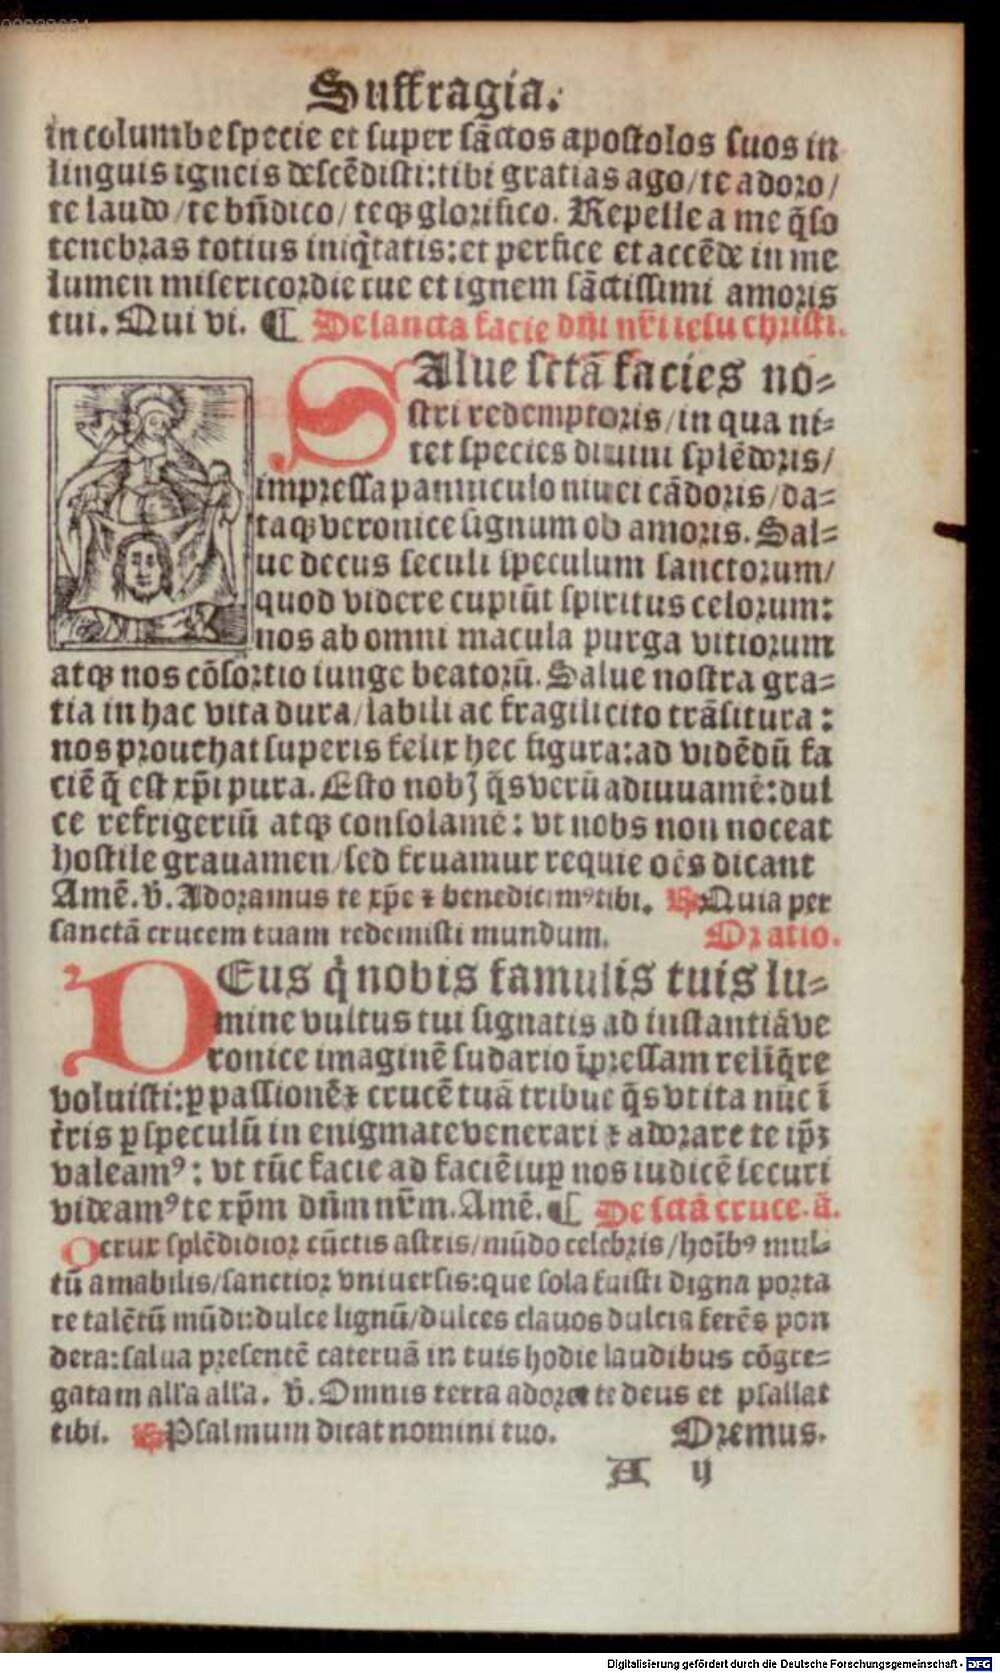 Suffragia.
in columbe specie et super sāctos apostolos suos in
linguis igneis descēdisti: tibi gratias ago/ te adoro/
te laudo/ te bn̄dico/ teqꝫ glorifico. Repelle a me q̄so
tenebras totius iniq̄tatis: et perfice et accēde in me
lumen misericordie tue et ignem sāctissimi amoris
tui. Qui vi. ¶ De sancta facie dn̄i nr̄i iesu christi.
SAlue sctā facies no⸗
stri redemptoris/ in qua ni⸗
tet species diuini splēdoris/
impressa panniculo niuei cādoris/ da⸗
taqꝫ veronice signum ob amoris. Sal⸗
ue decus seculi speculum sanctorum/
quod videre cupiūt spiritus celorum:
nos ab omni macula purga vitiorum
atqꝫ nos cōsortio iunge beatorū. Salue nostra gra⸗
tia in hac vita dura/ labili ac fragili cito trāsitura:
nos prouehat superis felix hec figura: ad vidēdū fa
ciē q̄ est xp̄i pura. Esto nobꝫ q̄s verū adiuuamē: dul
ce refrigeriū atqꝫ consolamē: vt nobs non noceat
hostile grauamen/ sed fruamur requie oēs dicant
Amē. ℣. Adoramus te xp̄e ⁊ benedicimꝰ tibi. ℟ Quia per
sanctā crucem tuam redemisti mundum. Oratio.
DEus q̇ nobis famulis tuis lu⸗
mine vultus tui signatis ad instantiā ve
ronice imaginē sudario īpressam relīq̄re
voluisti: ꝑ passionē ⁊ crucē tuā tribue q̄s vt ita nūc ī
t̄ris ꝑ speculū in enigmate venerari ⁊ adorare te ip̄ꝫ
valeamꝰ: vt tūc facie ad faciē suꝑ nos iudicē securi
videamꝰ te xp̄m dn̄m nr̄m. Amē. ¶ De sctā cruce. ā.
O crux splēdidior cūctis astris/ mūdo celebris/ hoībꝰ mul⸗
tū amabilis/ sanctior vniuersis: que sola fuisti digna porta
re talētū mūdi: dulce lignū/ dulces clauos dulcia ferēs pon
dera: salua presentē cateruā in tuis hodie laudibus cōgre⸗
gatam alla alla. ℣. Omnis terra adoret te deus et psallat
tibi. ℟ Psalmum dicat nomini tuo. Oremus.
A ij
Digitalisierung gefördert durch die Deutsche Forschungsgemeinschaft - DFG